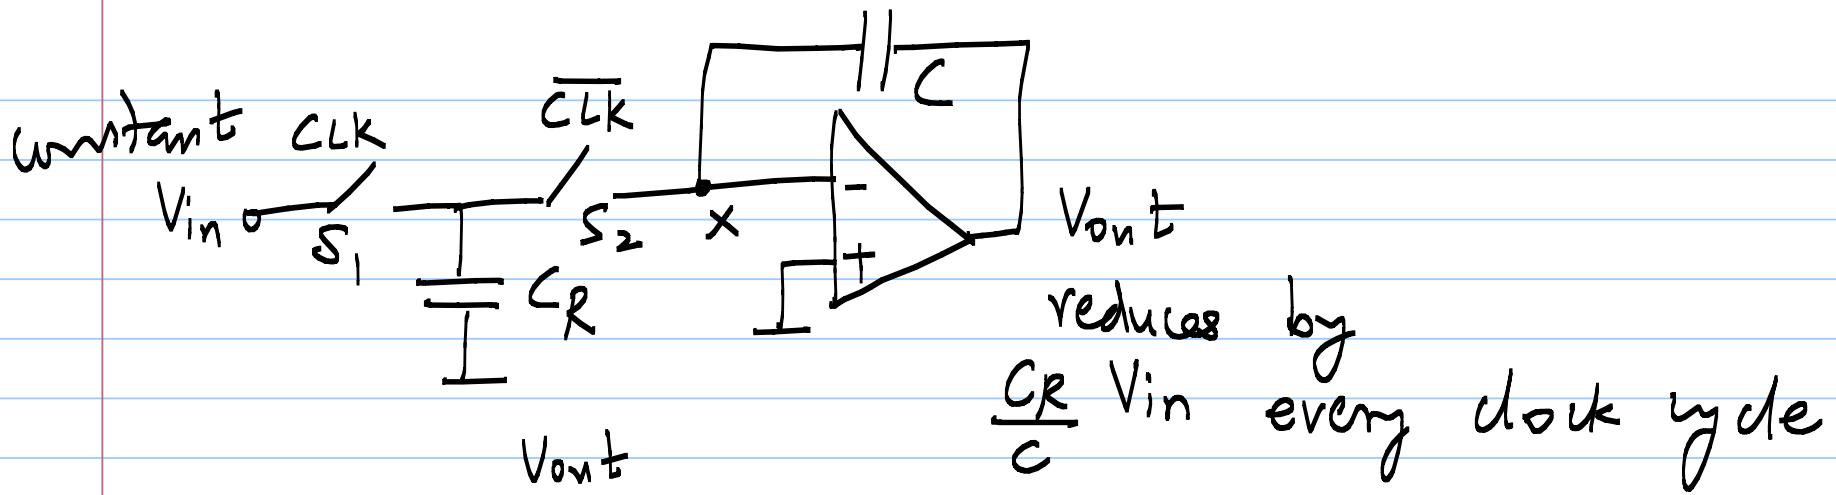 C
constant CLK C̅L̅K̅
Vin S₁ S₂ X - Vout
+
C_R reduces by
C_R/C Vin every clock cycle
Vout